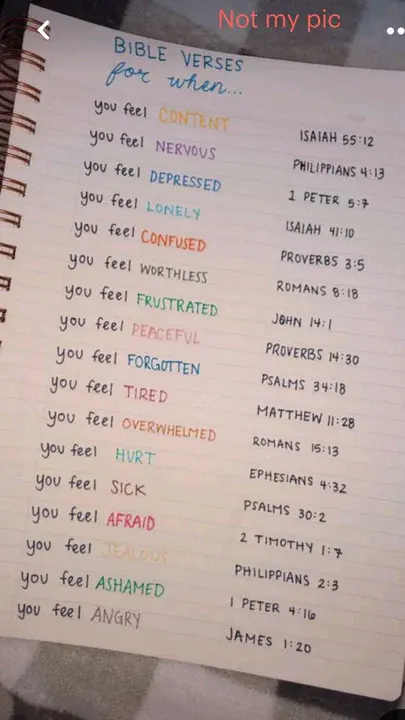 Not my pic
BIBLE VERSES
for when...
you feel CONTENT ISAIAH 55:12
you feel NERVOUS PHILIPPIANS 4:13
you feel DEPRESSED 1 PETER 5:7
you feel LONELY ISAIAH 41:10
you feel CONFUSED PROVERBS 3:5
you feel WORTHLESS ROMANS 8:18
you feel FRUSTRATED JOHN 14:1
you feel PEACEFUL PROVERBS 14:30
you feel FORGOTTEN PSALMS 34:18
you feel TIRED MATTHEW 11:28
you feel OVERWHELMED ROMANS 15:13
you feel HURT EPHESIANS 4:32
you feel SICK PSALMS 30:2
you feel AFRAID 2 TIMOTHY 1:7
you feel JEALOUS PHILIPPIANS 2:3
you feel ASHAMED 1 PETER 4:16
you feel ANGRY JAMES 1:20